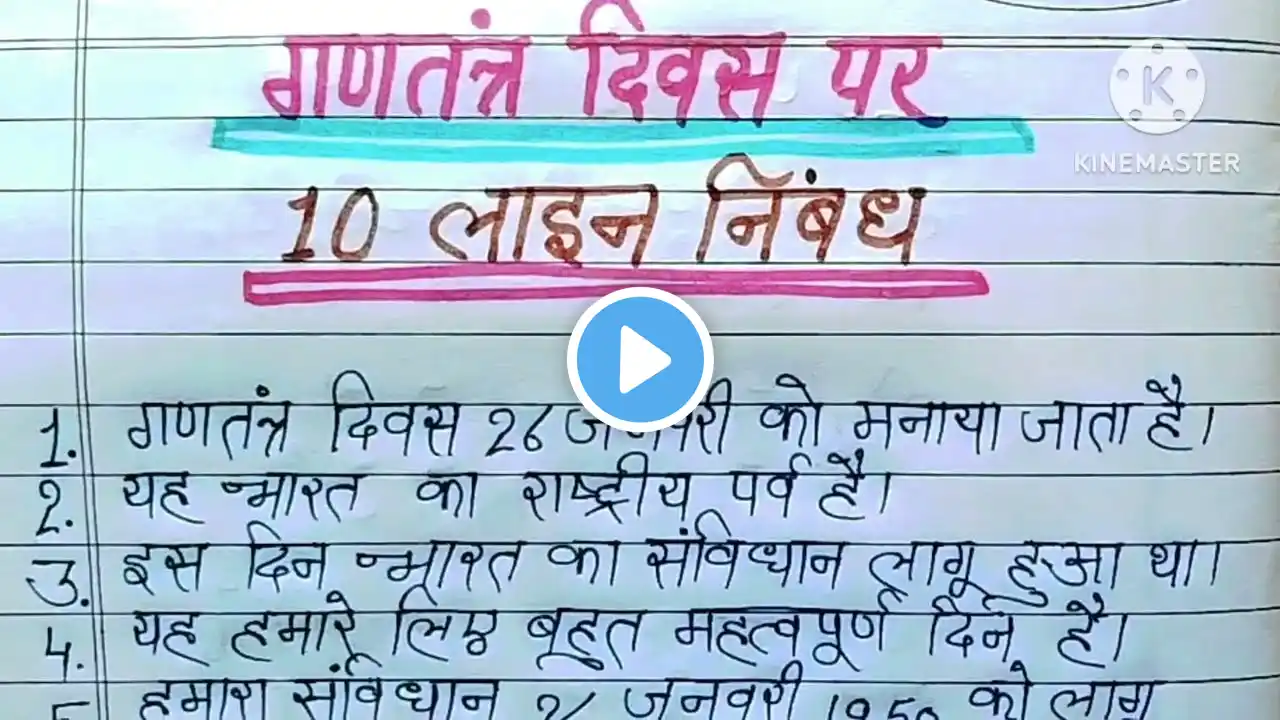 गणतंत्र दिवस पर
KINEMASTER
10 लाइन निबंध
1. गणतंत्र दिवस 26 जनवरी को मनाया जाता है।
2. यह भारत का राष्ट्रीय पर्व है।
3. इस दिन भारत का संविधान लागू हुआ था।
4. यह हमारे लिए बहुत महत्वपूर्ण दिन है।
5. हमारा संविधान 26 जनवरी 1950 को लागू